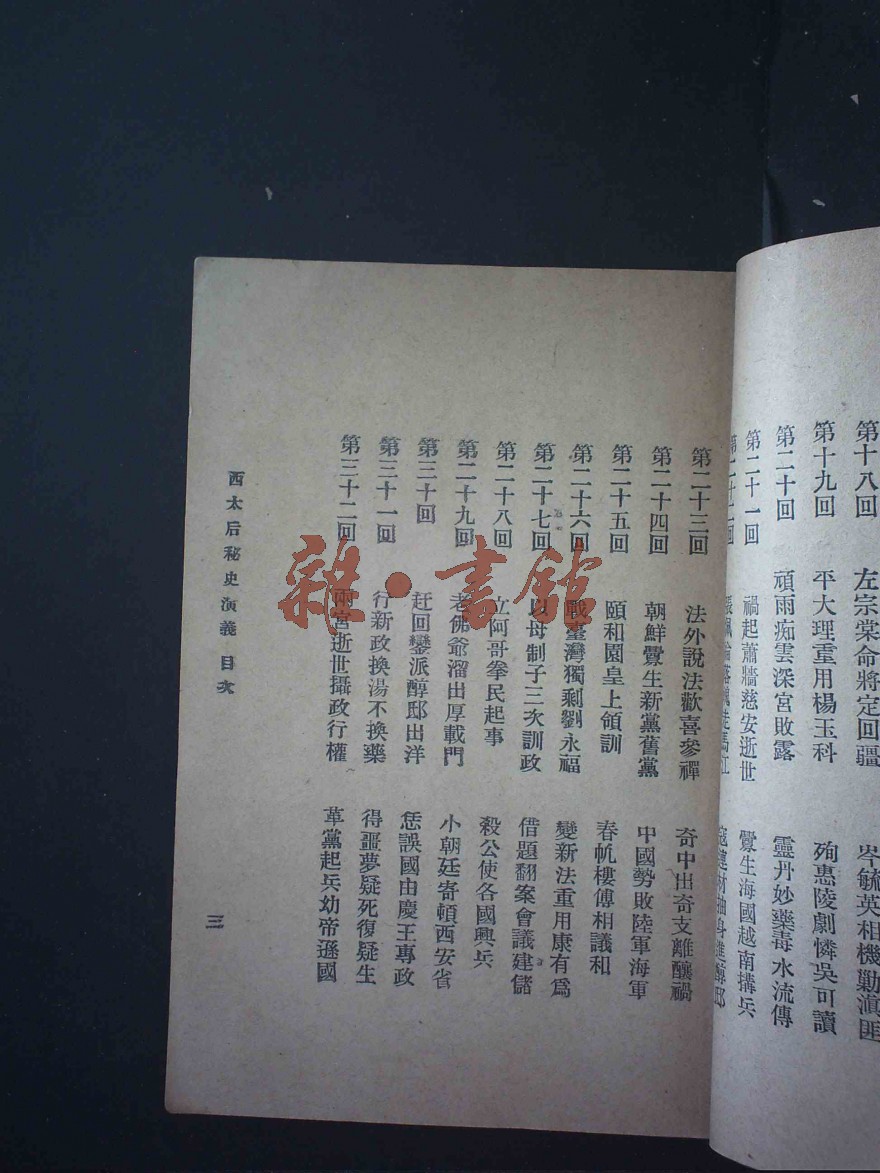 第十八回 左宗棠命將定回疆 岑毓英相機勦滇匪
第十九回 平大理重用楊玉科 殉惠陵劇憐吳可讀
第二十回 頑雨痴雲深宮敗露 靈丹妙藥毒水流傳
第二十一回 禍起蕭牆慈安逝世 釁生海國越南搆兵
第二十二回
第二十三回 法外說法歡喜參禪 奇中出奇支離釀禍
第二十四回 朝鮮釁生新黨舊黨 中國勢敗陸軍海軍
第二十五回 頤和園皇上領訓 春帆樓傅相議和
第二十六回 戰臺灣獨剩劉永福 變新法重用康有爲
第二十七回 以母制子三次訓政 借題翻案會議建儲
第二十八回 立阿哥拳民起事 殺公使各國興兵
第二十九回 老佛爺溜出厚載門 小朝廷寄頓西安省
第三十回 赶回鑾派醇邸出洋 恁誤國由慶王專政
第三十一回 行新政換湯不換藥 得噩夢疑死復疑生
第三十二回 兩宮逝世攝政行權 革黨起兵幼帝遜國
西太后秘史演義 目次
三
雜·書館